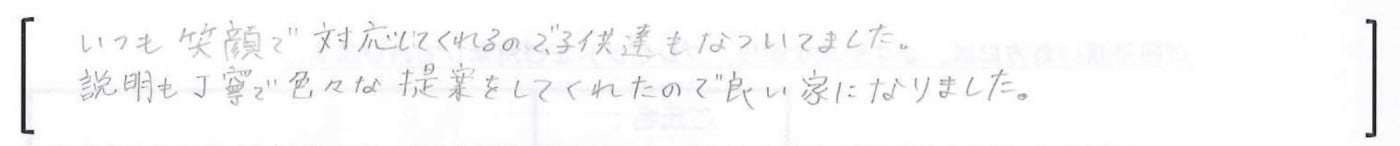 いつも笑顔で対応してくれるので子供達もなついてました。
説明も丁寧で色々な提案をしてくれたので良い家になりました。